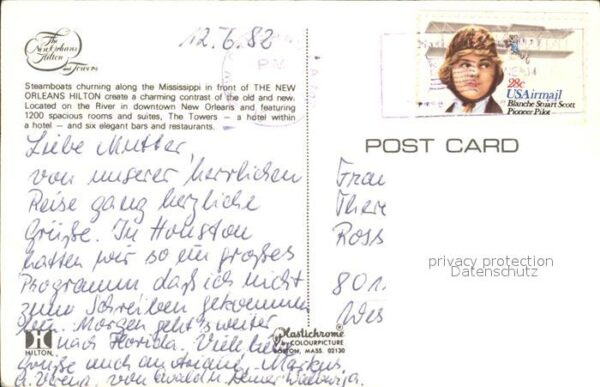 12.6.82
The
New Orleans
Hilton
and Towers
Steamboats churning along the Mississippi in front of THE NEW
ORLEANS HILTON create a charming contrast of the old and new.
Located on the River in downtown New Orleans and featuring
1200 spacious rooms and suites, The Towers — a hotel within
a hotel — and six elegant bars and restaurants.
PM
28c
USAirmail
Blanche Stuart Scott
Pioneer Pilot
POST CARD
Liebe Mutter,
von unserer herrlichen
Reise ganz herzliche
Grüße. In Houston
hatten wir so ein großes
Programm daß ich nicht
zum Schreiben gekommen
bin. Morgen geht's weiter
nach Florida. Viele liebe
Grüße auch an Markus,
u. Verena, von
Frau
There
Ross
801
Wes
privacy protection
Datenschutz
HILTON
Plastichrome
by COLOURPICTURE
BOSTON, MASS. 02130